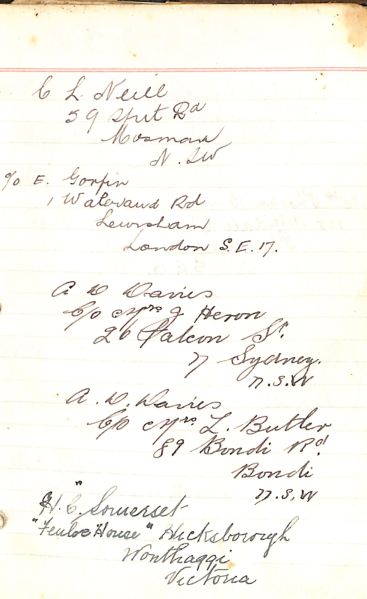 C L Neill
59 Spit Rd
Mosman
N. SW
c/o E. Gorfin
1 Waterand Rd
Lewisham
London S.E. 17.
A D Davies
C/o Mrs J Heron
26 Falcon St
N Sydney.
N.S.W
A. D. Davies
C/o Mrs L. Butler
89 Bondi Rd.
Bondi
N.S.W
H. C. Somerset
House" Hicksborough
Wonthaggi
Victoria